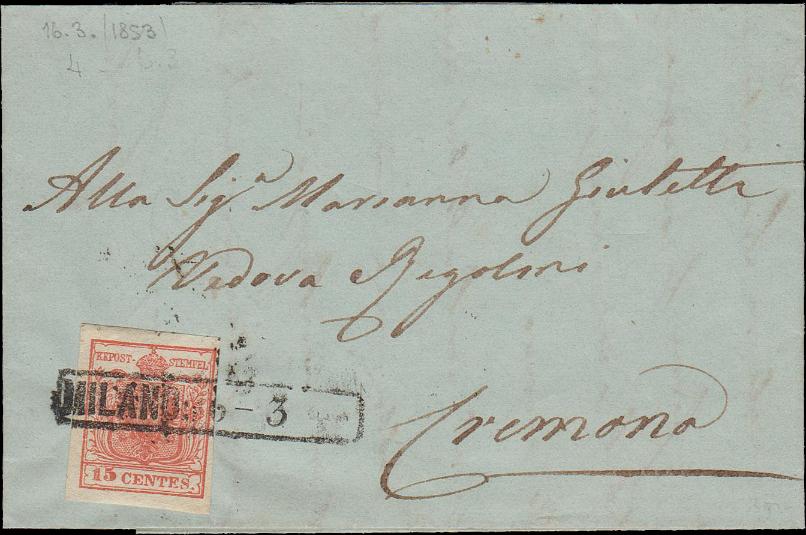 16.3.(1853)
4
Alla Sig.ª Marianna Giuletti
Vedova Regolini
Cremona
KKPOST-STEMPEL
15 CENTES.
MILANO - 3